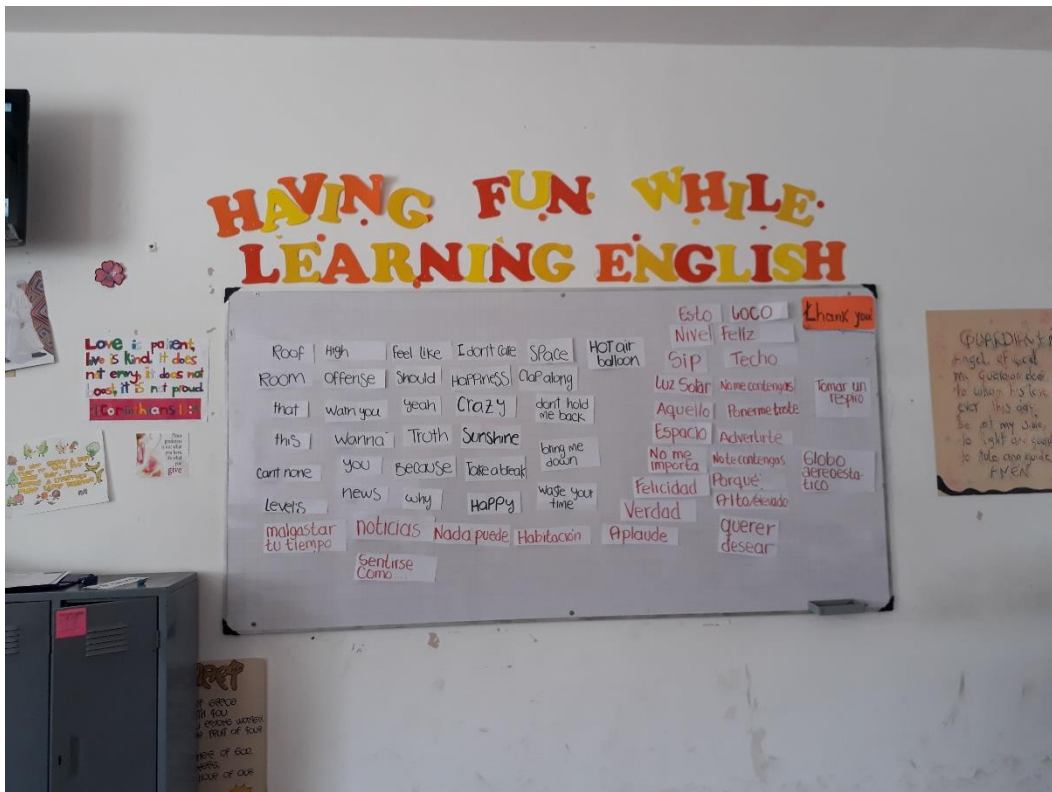 HAVING FUN WHILE
LEARNING ENGLISH
Love is patient
love is kind. it does
not envy, it does not
boast, it is not proud
1 Corinthians 13:
give
Roof
High
feel like
I don't care
Space
HOT air
balloon
ROOM
offense
Should
HAPPINESS
Clap along
that
warn you
yeah
Crazy
don't hold
me back
this
wanna
Truth
Sunshine
bring me
down
can't none
you
Because
Take a break
levels
news
why
HAPPY
waste your
time
malgastar
tu tiempo
noticias
Nada puede
Habitación
Aplaude
querer
desear
Sentirse
Como...
Esto
LOCO
thank you
Nivel
Feliz
Sip
Techo
Luz Solar
No me contengas
Tomar un
respiro
Aquello
Ponerme triste
Espacio
Advertirte
No me
importa
No te contengas
Globo
aereosta-
tico
Felicidad
Porqué
Alto/elevado
Verdad
Angel of God
my Guardian dear
to whom his love
ever this day
be at my side,
to light and guard
to rule and guide
AMEN
OF GOD
OF OUR